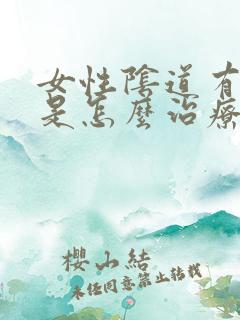 女性陰道有
是怎麼治療
櫻山結
未經同意禁止轉載